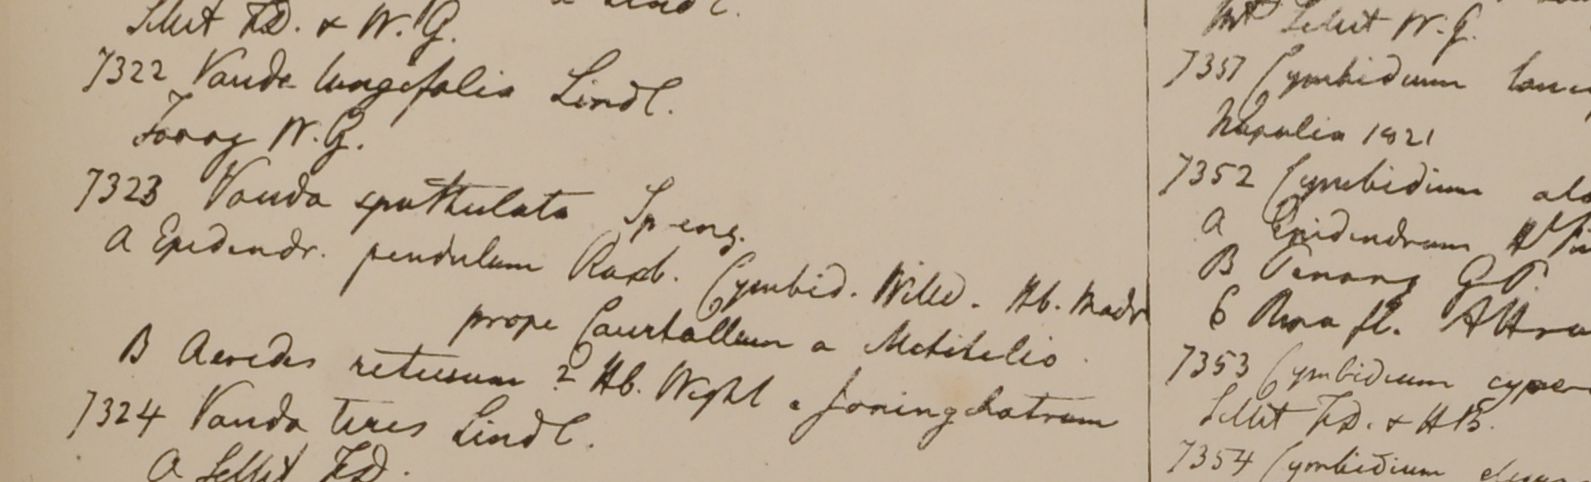 Sillet F.D. & W.G.
7322 Vanda longifolia Lindl.
Tavoy W.G.
7323 Vanda spathulata Spreng.
A Epidendr. pendulum Roxb. Cymbid. Willd. Hb. Madr
prope Courtallum a
B Aerides retusum? Hb. Wight a
7324 Vanda teres Lindl.
A Sillet F.D.
Mt Sillet W.G.
7351 Cymbidium
Napalia 1821
7352 Cymbidium
A Epidendrum
B Penang G.P.
6 fl.
7353 Cymbidium
Sillet F.D. & H.B.
7354 Cymbidium